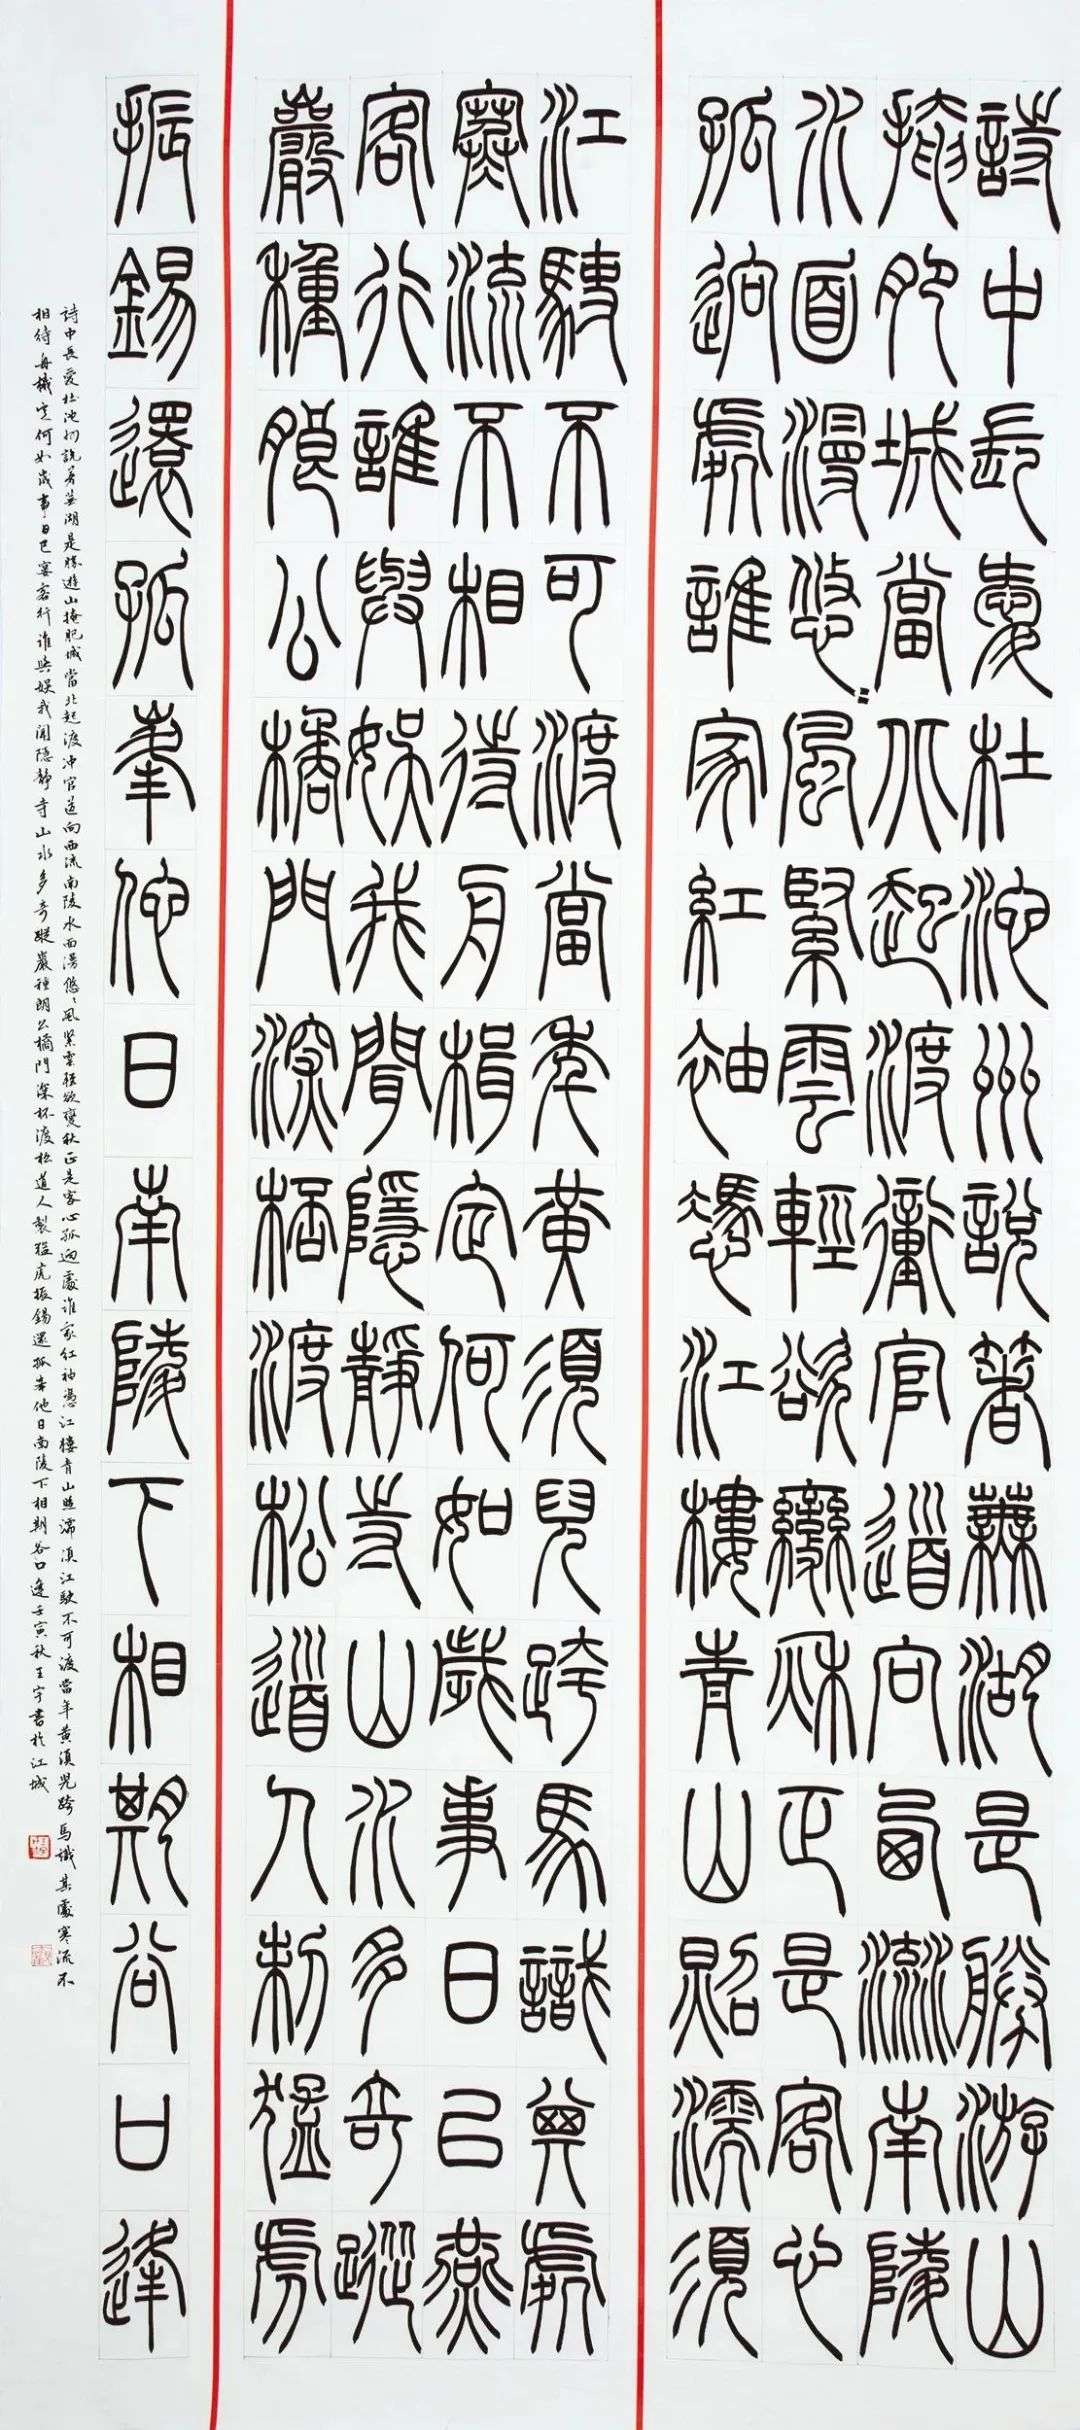 詩中長愛杜池州說著蕪湖是勝游山
掩肥城當北起渡衝官道向西流南陵
水面漫悠〻風緊雲輕欲變秋正是客心
孤迥處誰家紅袖憑江樓青山照濡須
江駛不可渡當年黃須兒跨馬識其處
寒流不相待舟楫定何如歲事日已燕
客行誰與娛我聞隱靜寺山水多奇蹤
巖種朗公橘門深桮渡松道人制猛虎
振錫還孤峯他日南陵下相期谷口逢
詩中長愛杜池州說著蕪湖是勝遊山掩肥城當北起渡沖官道向西流南陵水面漫悠〻風緊雲輕欲變秋正是客心孤迥處誰家紅袖憑江樓青山照濡湏江駛不可渡當年黃湏兒跨馬識其處寒流不
相待舟檝定何如歲事日已宴客行誰與娛我聞隱靜寺山水多奇蹤巖種朗公橘門深杯渡松道人製猛虎振錫還孤峯他日南陵下相期谷口逢壬寅秋王宇書於江城